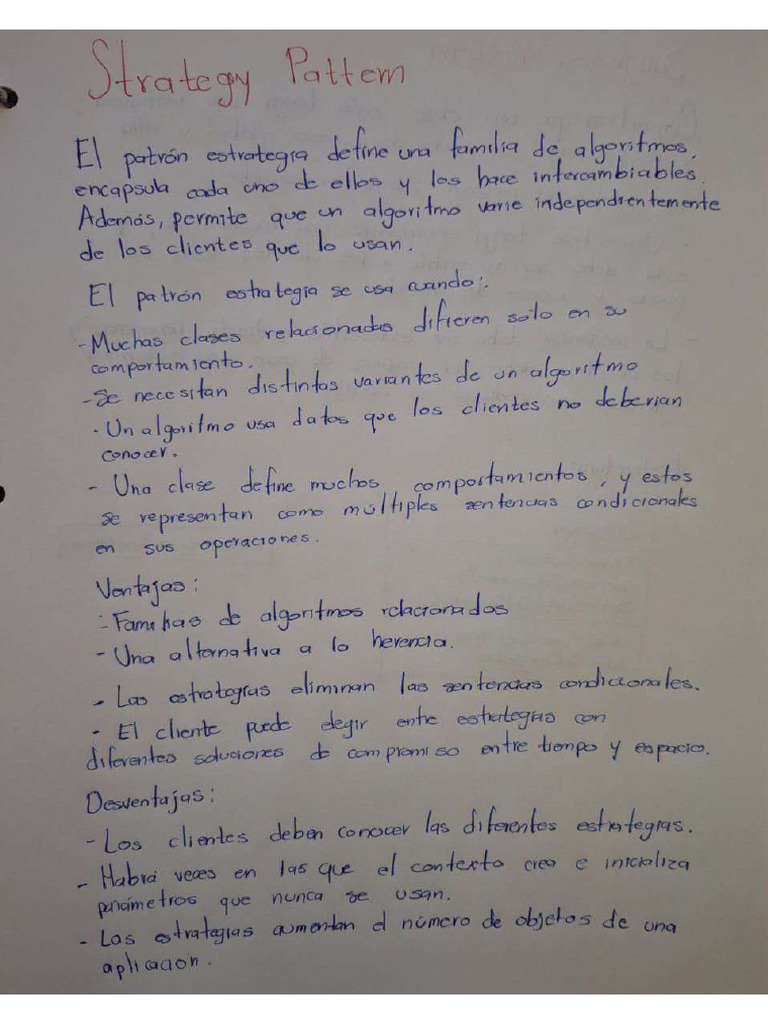 Strategy Pattern
El patrón estrategia define una familia de algoritmos,
encapsula cada uno de ellos y los hace intercambiables.
Además, permite que un algoritmo varie independientemente
de los clientes que lo usan.
El patrón estrategia se usa cuando:
- Muchas clases relacionadas difieren solo en su
comportamiento.
- Se necesitan distintos variantes de un algoritmo
- Un algoritmo usa datos que los clientes no deberian
conocer.
- Una clase define muchos comportamientos, y estos
se representan como múltiples sentencias condicionales
en sus operaciones.
Ventajas:
- Familias de algoritmos relacionados
- Una alternativa a la herencia.
- Las estrategias eliminan las sentencias condicionales.
- El cliente puede elegir entre estrategias con
diferentes soluciones de compromiso entre tiempo y espacio.
Desventajas:
- Los clientes deben conocer las diferentes estrategias.
- Habrá veces en las que el contexto crea e inicializa
parámetros que nunca se usan.
- Las estrategias aumentan el número de objetos de una
aplicación.